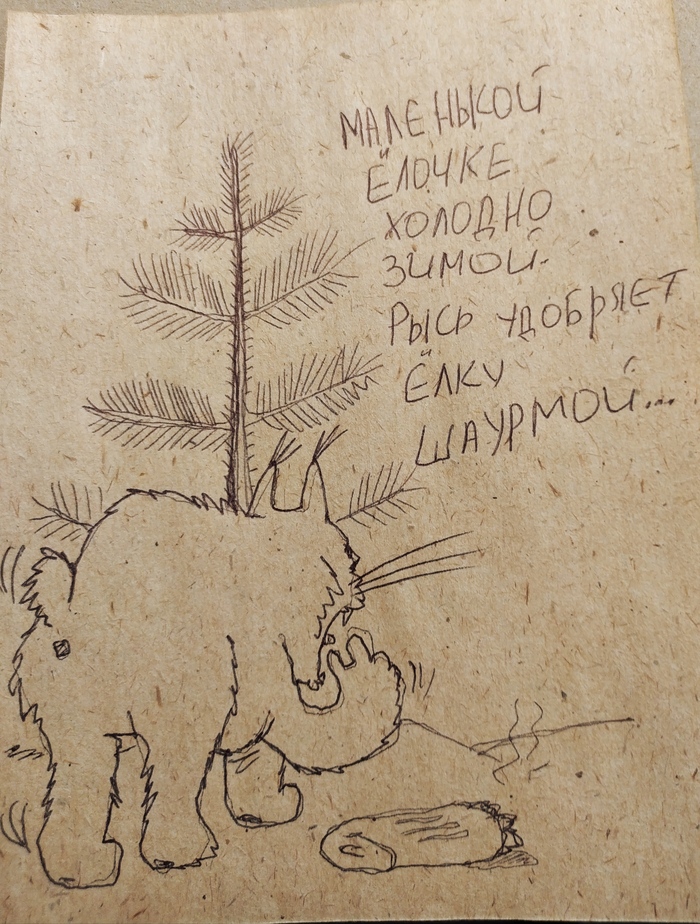 МАЛЕНЬКОЙ
ЁЛОЧКЕ
ХОЛОДНО
ЗИМОЙ.
РЫСЬ УДОБРЯЕТ
ЁЛКУ
ШАУРМОЙ...